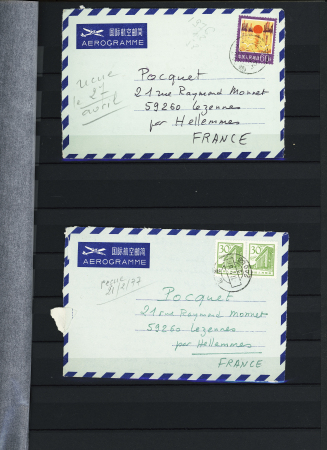 国际航空邮简
AEROGRAMME
reçue
le 21
avril
60
Pocquet
21 rue Raymond Monnet
59260 Lezennes
par Hellemmes
FRANCE
国际航空邮简
AEROGRAMME
reçue
21/2/77
30
30
Pocquet
21 rue Raymond Monnet
59260 Lezennes
par Hellemmes
FRANCE